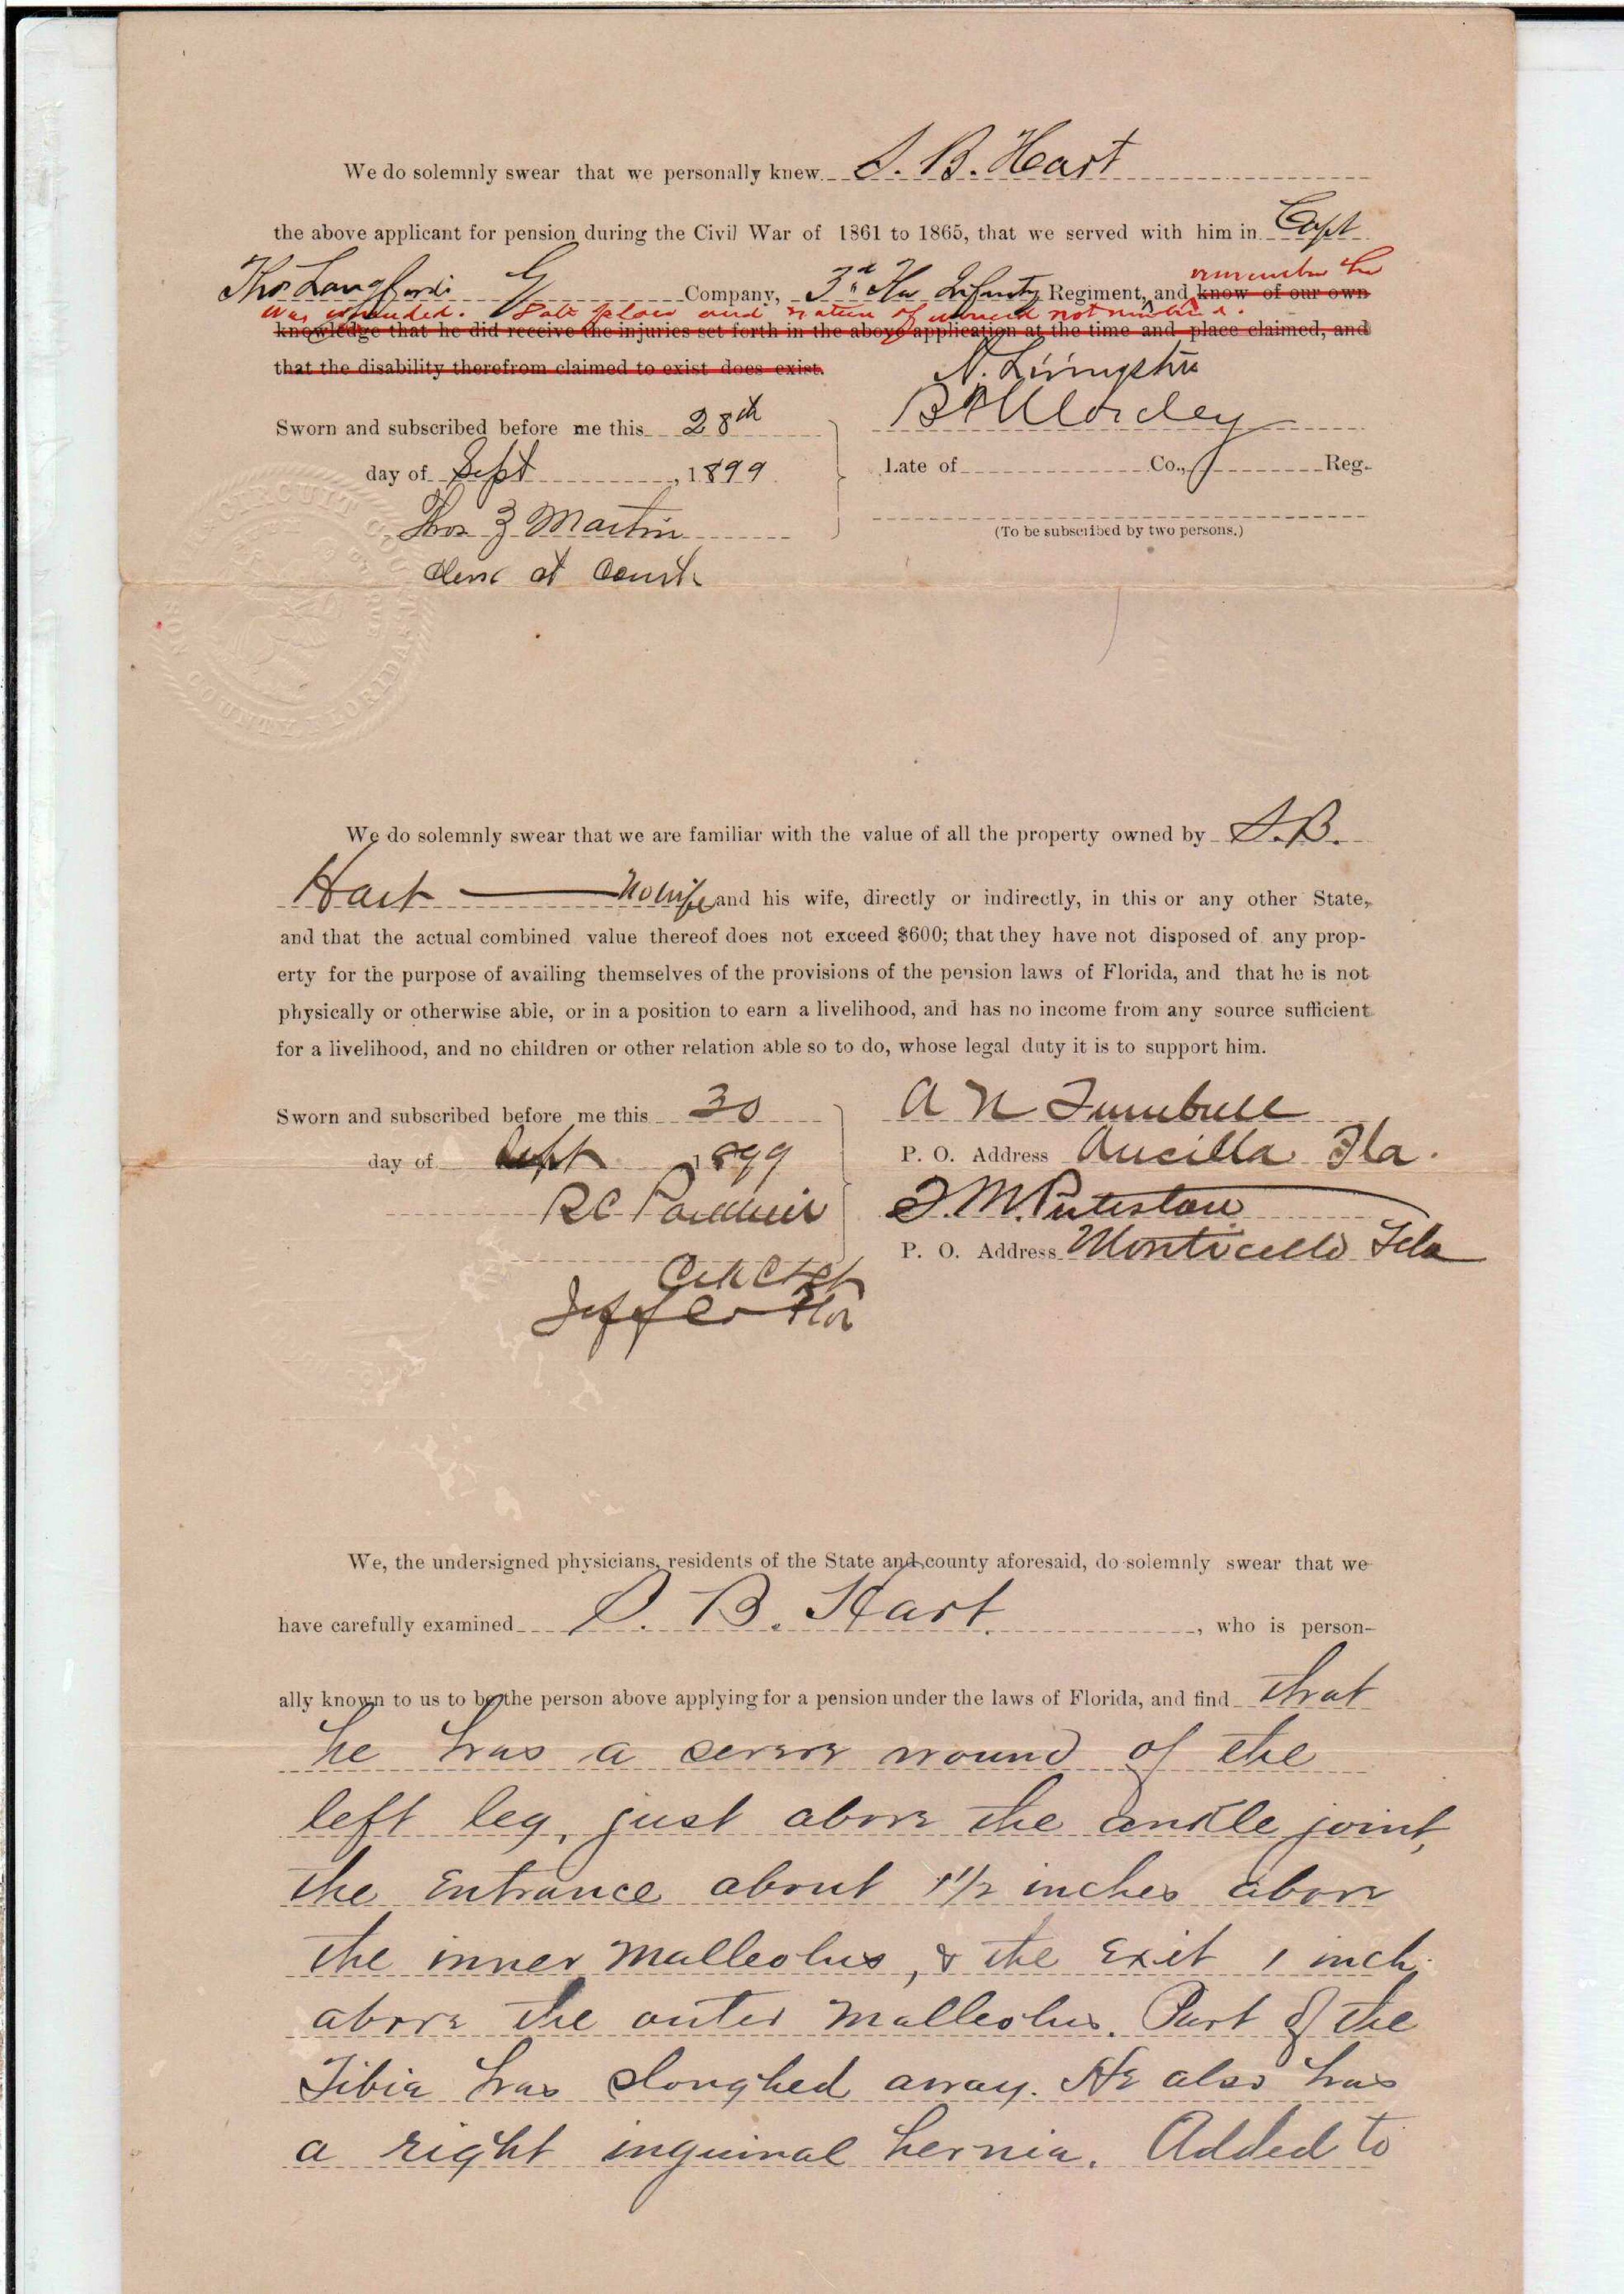 We do solemnly swear that we personally knew S. B. Hart
the above applicant for pension during the Civil War of 1861 to 1865, that we served with him in Capt
Thos Langford G Company, 3rd Fla Infantry Regiment, and know of our own
remember he
was wounded. Date place and nature of wound not
knowledge that he did receive the injuries set forth in the above application at the time and place claimed, and
that the disability therefrom claimed to exist does exist.
N. Livingston
Sworn and subscribed before me this 28th
day of Sept, 1899
Late of Co., Reg.
Thos Martin
(To be subscribed by two persons.)
Clerk Court
CIRCUIT COURT
COUNTY FLORIDA
We do solemnly swear that we are familiar with the value of all the property owned by S.B.
Hart — No wife and his wife, directly or indirectly, in this or any other State,
and that the actual combined value thereof does not exceed $600; that they have not disposed of any prop-
erty for the purpose of availing themselves of the provisions of the pension laws of Florida, and that he is not
physically or otherwise able, or in a position to earn a livelihood, and has no income from any source sufficient
for a livelihood, and no children or other relation able so to do, whose legal duty it is to support him.
Sworn and subscribed before me this 30
A N Turnbull
day of Sept 1899
P. O. Address Aucilla Fla.
R C
P. O. Address Monticello Fla
We, the undersigned physicians, residents of the State and county aforesaid, do solemnly swear that we
have carefully examined S. B. Hart, who is person-
ally known to us to be the person above applying for a pension under the laws of Florida, and find that
he has a severe wound of the
left leg, just above the ankle joint,
the Entrance about 1 1/2 inches above
the inner Malleolus, & the Exit 1 inch
above the outer Malleolus. Part of the
Tibia has sloughed away. He also has
a right inguinal hernia. Added to